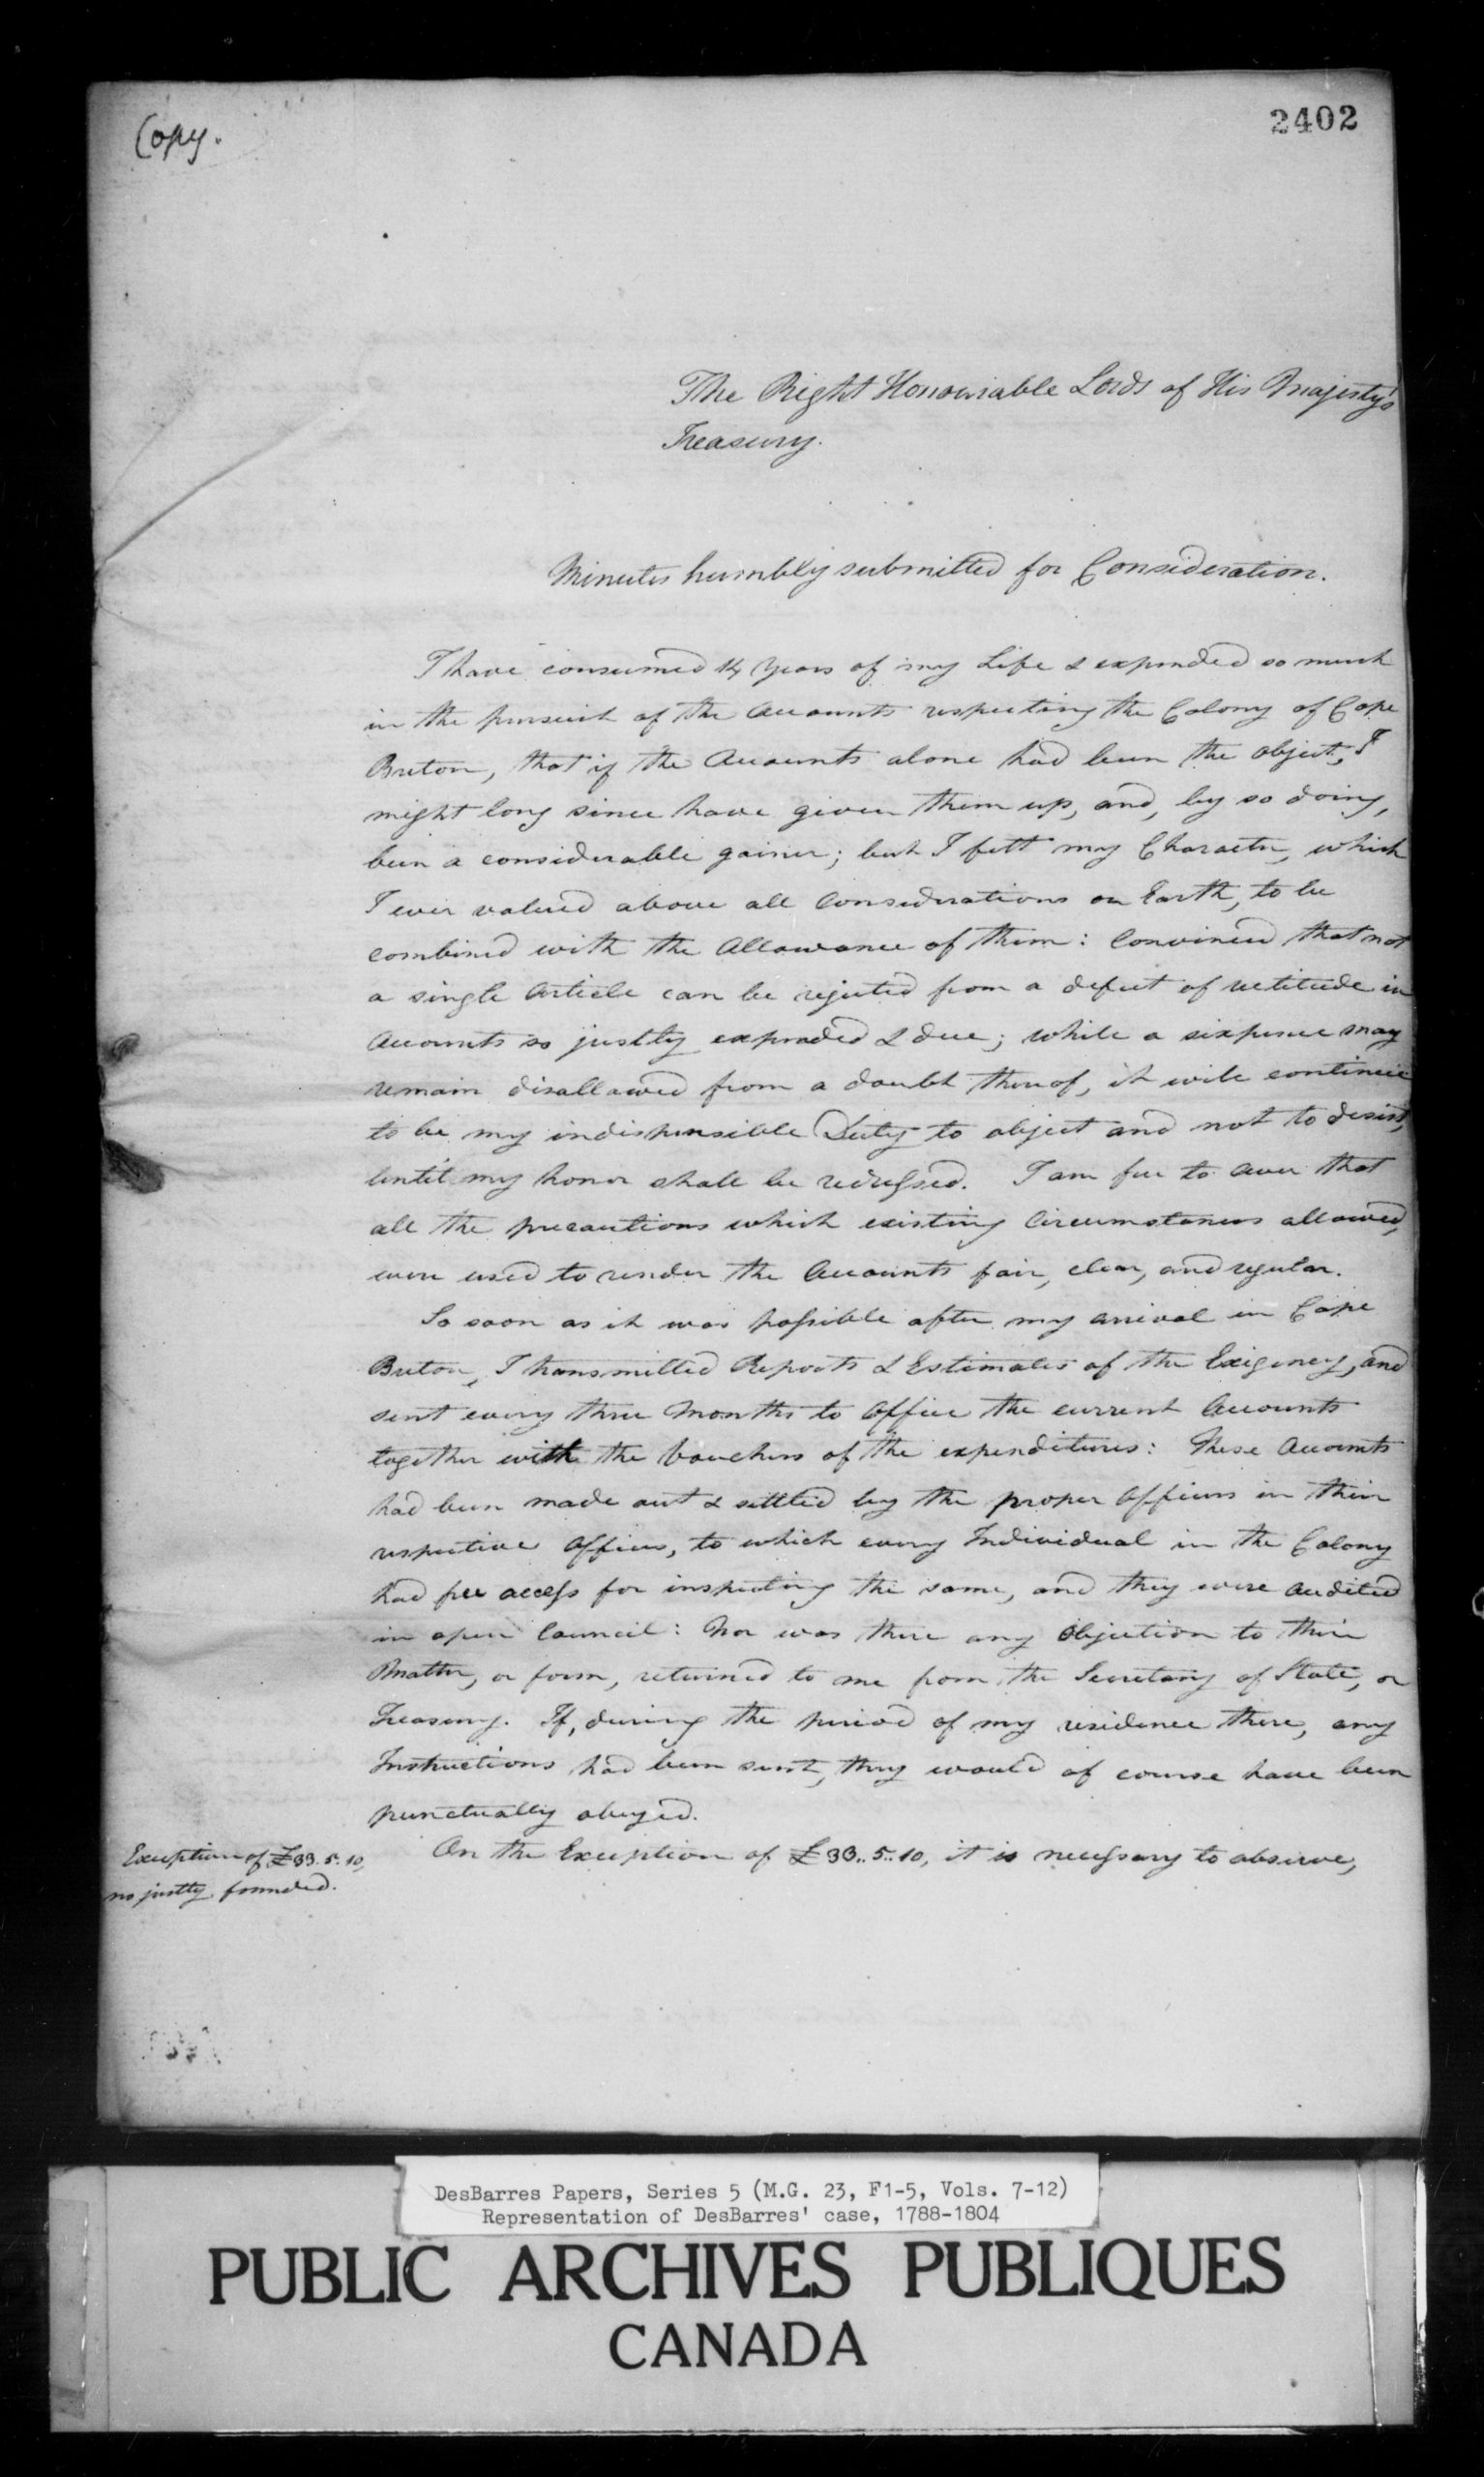 Copy.
2402
The Right Honourable Lords of His Majesty's
Treasury.
Minutes humbly submitted for Consideration.
I have consumed 14 Years of my Life & expended so much
in the pursuit of the Accounts respecting the Colony of Cape
Breton, that if the Accounts alone had been the object, I
might long since have given them up, and, by so doing,
been a considerable gainer; but I felt my Character, which
I ever valued above all Considerations on Earth, to be
combined with the Allowance of them: Convinced that not
a single Article can be rejected from a defect of rectitude in
Accounts so justly expended & due; while a sixpence may
remain disallowed from a doubt thereof, it will continue
to be my indispensible Duty to object and not to desist,
until my honor shall be redressed. I am free to aver that
all the precautions which existing Circumstances allowed,
were used to render the Accounts fair, clear, and regular.
So soon as it was possible after my arrival in Cape
Breton, I transmitted Reports & Estimates of the Exigency, and
sent every three Months to Office the current Accounts
together with the Vouchers of the expenditures: These Accounts
had been made out & settled by the proper Officers in their
respective Offices, to which every Individual in the Colony
had free access for inspecting the same, and they were audited
in open Council: Nor was there any Objection to their
Matter, or form, returned to me from the Secretary of State, or
Treasury. If, during the period of my residence there, any
Instructions had been sent, they would of course have been
punctually obeyed.
Exception of £33.5.10,
no justly founded.
On the Exception of £33..5..10, it is necessary to observe,
DesBarres Papers, Series 5 (M.G. 23, F1-5, Vols. 7-12)
Representation of DesBarres' case, 1788-1804
PUBLIC ARCHIVES PUBLIQUES
CANADA